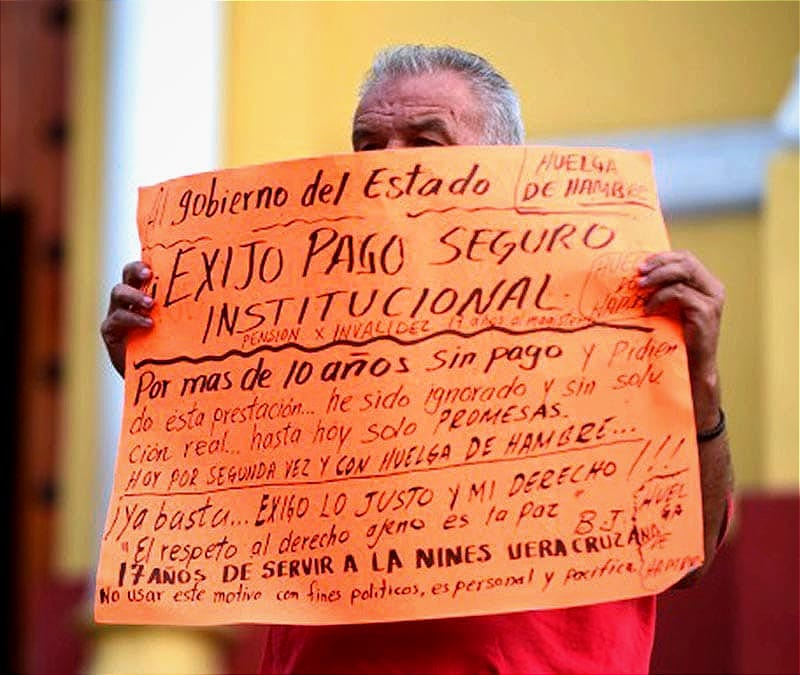 Al gobierno del Estado
HUELGA
DE HAMBRE
¡EXIJO PAGO SEGURO
INSTITUCIONAL.
HUELGA
DE
HAMBRE
PENSION X INVALIDEZ 17 años al
Por mas de 10 años sin pago y Pidien
do esta prestación... he sido ignorado y sin solu
ción real... hasta hoy solo PROMESAS.
HOY POR SEGUNDA VEZ Y CON HUELGA DE HAMBRE...
¡Ya basta... EXIGO LO JUSTO Y MI DERECHO !!!
"El respeto al derecho ajeno es la Paz" B.J.
HUEL
GA
DE
HAMBRE
17 AÑOS DE SERVIR A LA NINES VERACRUZANA
No usar este motivo con fines politicos, es personal y pacifica